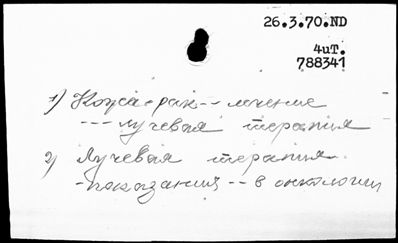 26.3.70.ND
4иТ.
788341
1) Кожа-рак--лечение
---лучевая терапия
2) Лучевая терапия-
-показания--в онкологии